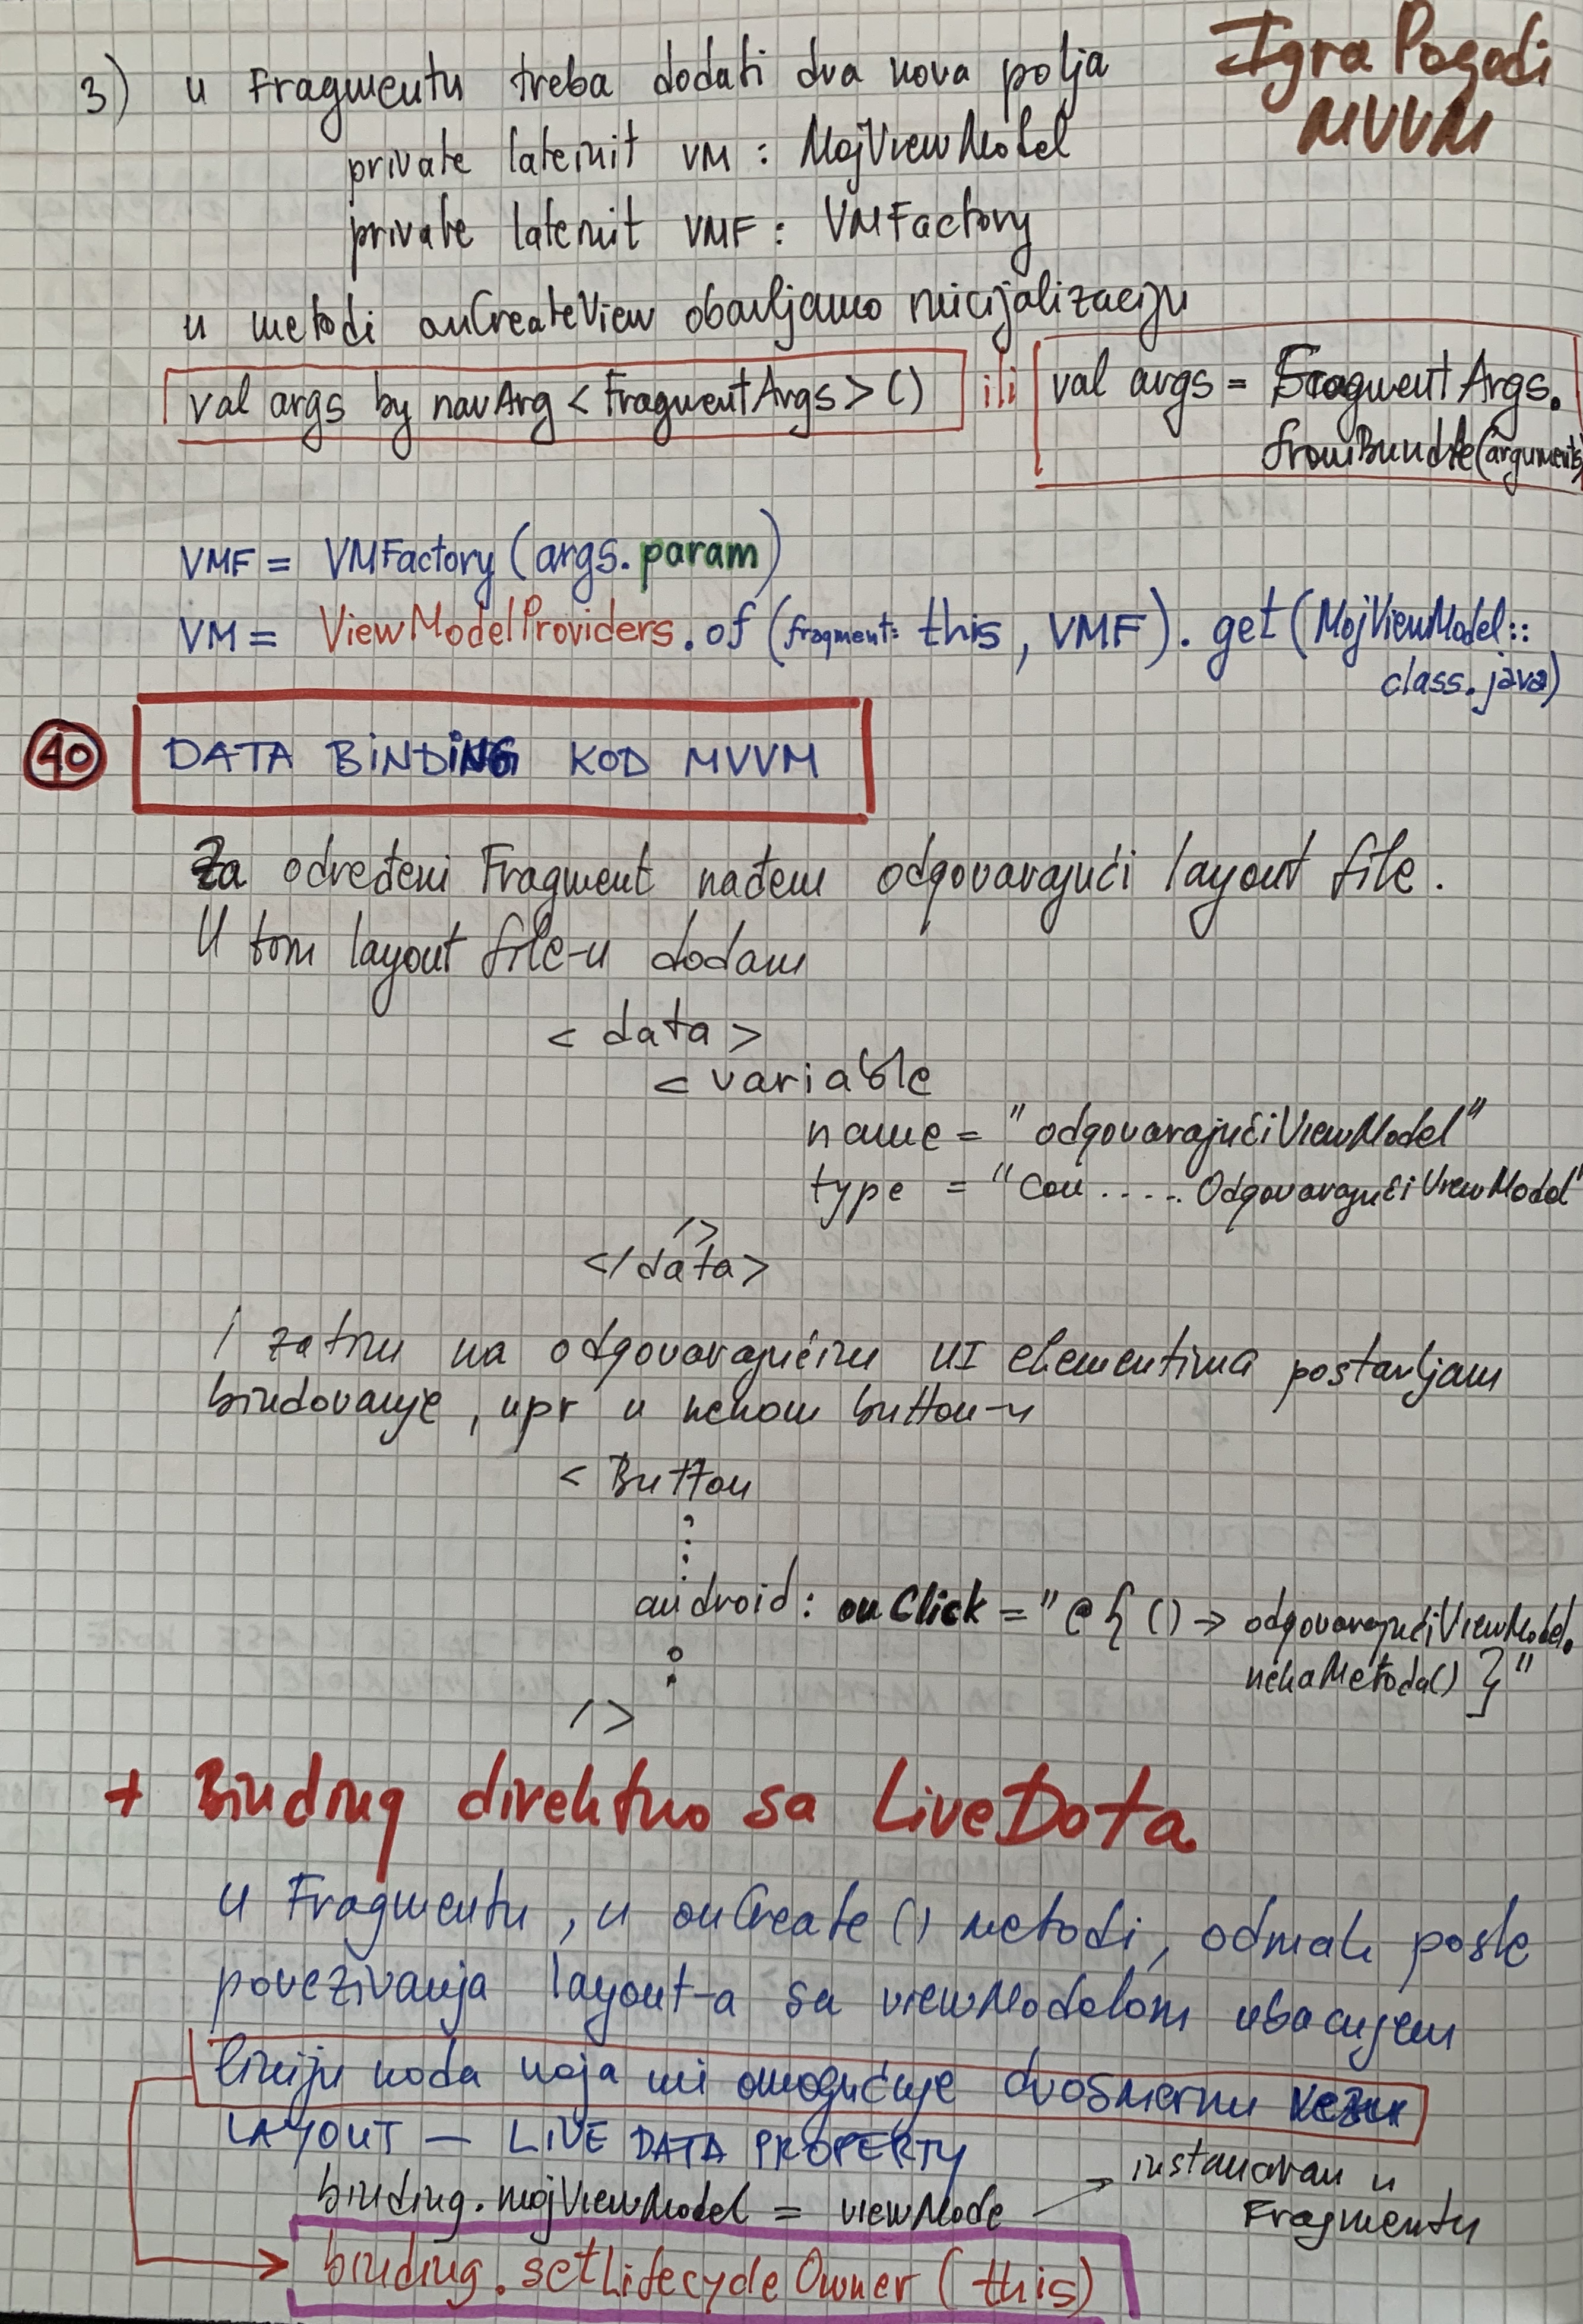 Igra Pogodi
MVVM
3) u Fragmentu treba dodati dva nova polja
private lateinit VM : MojViewModel
private lateinit VMF : VMFactory
u metodi onCreateView obavljamo inicijalizaciju
val args by navArg < FragmentArgs > () ili val args = FragmentArgs.
fromBundle(arguments)
VMF = VMFactory (args.param)
VM = ViewModelProviders.of (fragment: this, VMF). get (MojViewModel::
class.java)
40 DATA BINDING KOD MVVM
Za određeni Fragment nađem odgovarajući layout file.
U tom layout file-u dodam
< data >
< variable
name = "odgovarajućiViewModel"
type = "com ..... OdgovarajućiViewModel"
/>
</data>
I zatim na odgovarajućim UI elementima postavljam
bindovanje, npr u nekom button-u
< Button
:
android: onClick = "@{ () -> odgovarajućiViewModel.
nekaMetoda() }"
:
/>
+ Binding direktno sa LiveData
U Fragmentu, u onCreate () metodi, odmah posle
povezivanja layout-a sa viewModelom ubacujem
liniju koda koja mi omogućuje dvosmernu vezu
LAYOUT — LIVE DATA PROPERTY
binding.mojViewModel = viewMode → instanciran u
Fragmentu
→ binding.setLifecycleOwner (this)